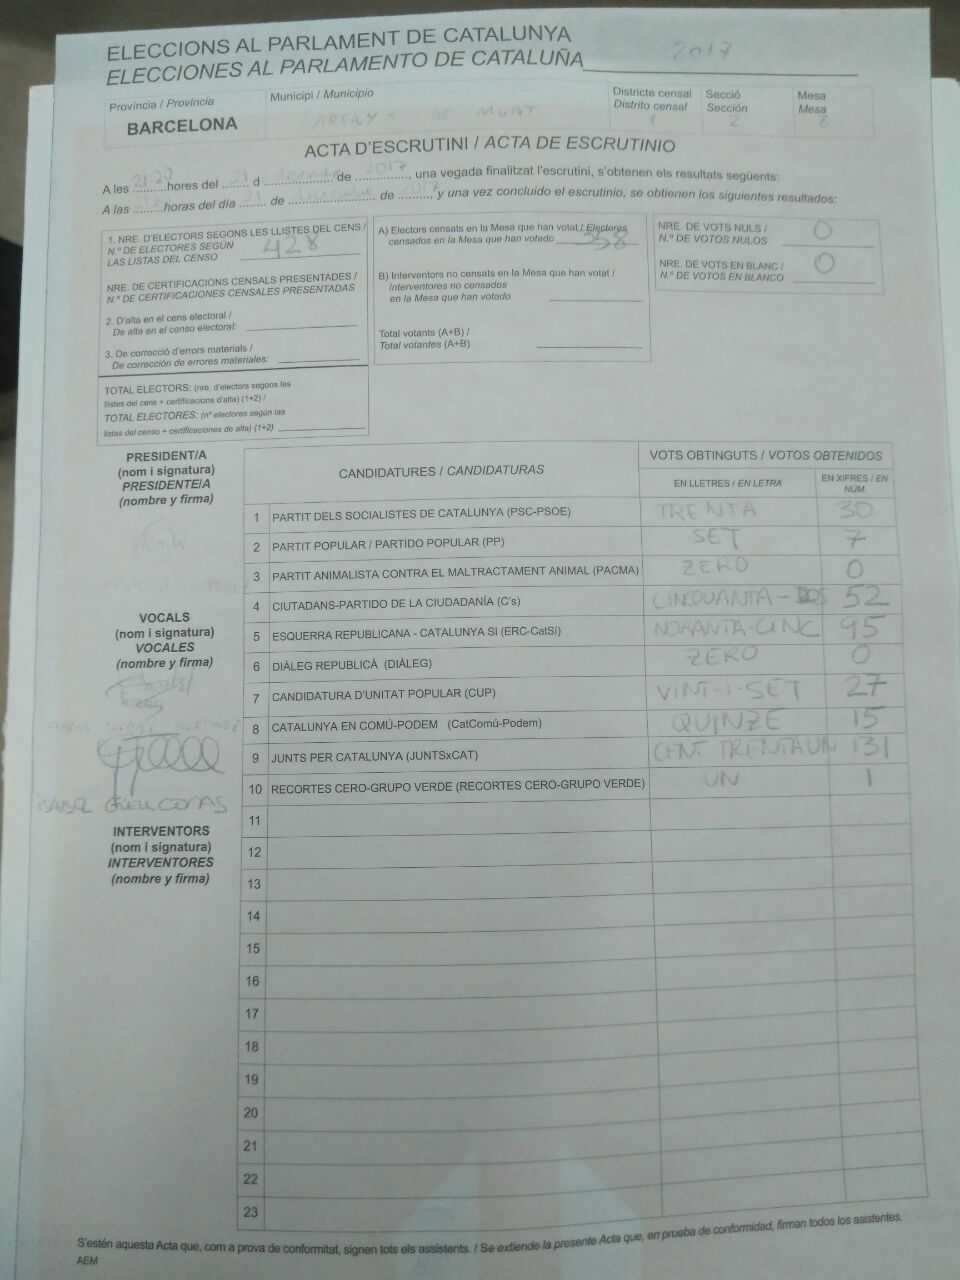 ELECCIONS AL PARLAMENT DE CATALUNYA
ELECCIONES AL PARLAMENTO DE CATALUÑA 2017
Provincia / Provincia
BARCELONA
Municipi / Municipio
ARENYS DE MUNT
Districte censal
Distrito censal
1
Secció
Sección
2
Mesa
Mesa
ACTA D'ESCRUTINI / ACTA DE ESCRUTINIO
A les 21:20 hores del 21 d desembre de 2017, una vegada finalitzat l'escrutini, s'obtenen els resultats següents:
A las horas del día de de 2017, y una vez concluido el escrutinio, se obtienen los siguientes resultados:
1. NRE. D'ELECTORS SEGONS LES LLISTES DEL CENS /
N.º DE ELECTORES SEGÚN
LAS LISTAS DEL CENSO 428
NRE. DE CERTIFICACIONS CENSALS PRESENTADES /
N.º DE CERTIFICACIONES CENSALES PRESENTADAS
2. D'alta en el cens electoral /
De alta en el censo electoral:
3. De correcció d'errors materials /
De corrección de errores materiales:
TOTAL ELECTORS: (nre. d'electors segons les
llistes del cens + certificacions d'alta) (1+2) /
TOTAL ELECTORES: (nº electores según las
listas del censo + certificaciones de alta) (1+2)
A) Electors censats en la Mesa que han votat / Electores
censados en la Mesa que han votado 358
B) Interventors no censats en la Mesa que han votat /
Interventores no censados
en la Mesa que han votado
Total votants (A+B) /
Total votantes (A+B)
NRE. DE VOTS NULS /
N.º DE VOTOS NULOS 0
NRE. DE VOTS EN BLANC /
N.º DE VOTOS EN BLANCO 0
PRESIDENT/A
(nom i signatura)
PRESIDENTE/A
(nombre y firma)
VOCALS
(nom i signatura)
VOCALES
(nombre y firma)
ISABEL
INTERVENTORS
(nom i signatura)
INTERVENTORES
(nombre y firma)
CANDIDATURES / CANDIDATURAS
VOTS OBTINGUTS / VOTOS OBTENIDOS
EN LLETRES / EN LETRA
EN XIFRES / EN NÚM.
1 PARTIT DELS SOCIALISTES DE CATALUNYA (PSC-PSOE) TRENTA 30
2 PARTIT POPULAR / PARTIDO POPULAR (PP) SET 7
3 PARTIT ANIMALISTA CONTRA EL MALTRACTAMENT ANIMAL (PACMA) ZERO 0
4 CIUTADANS-PARTIDO DE LA CIUDADANÍA (C's) CINQUANTA-DOS 52
5 ESQUERRA REPUBLICANA - CATALUNYA SI (ERC-CatSí) NORANTA-CINC 95
6 DIÀLEG REPUBLICÀ (DIÀLEG) ZERO 0
7 CANDIDATURA D'UNITAT POPULAR (CUP) VINT-I-SET 27
8 CATALUNYA EN COMÚ-PODEM (CatComú-Podem) QUINZE 15
9 JUNTS PER CATALUNYA (JUNTSxCAT) CENT TRENTA UN 131
10 RECORTES CERO-GRUPO VERDE (RECORTES CERO-GRUPO VERDE) UN 1
11
12
13
14
15
16
17
18
19
20
21
22
23
S'estén aquesta Acta que, com a prova de conformitat, signen tots els assistents. / Se extiende la presente Acta que, en prueba de conformidad, firman todos los asistentes.
AEM